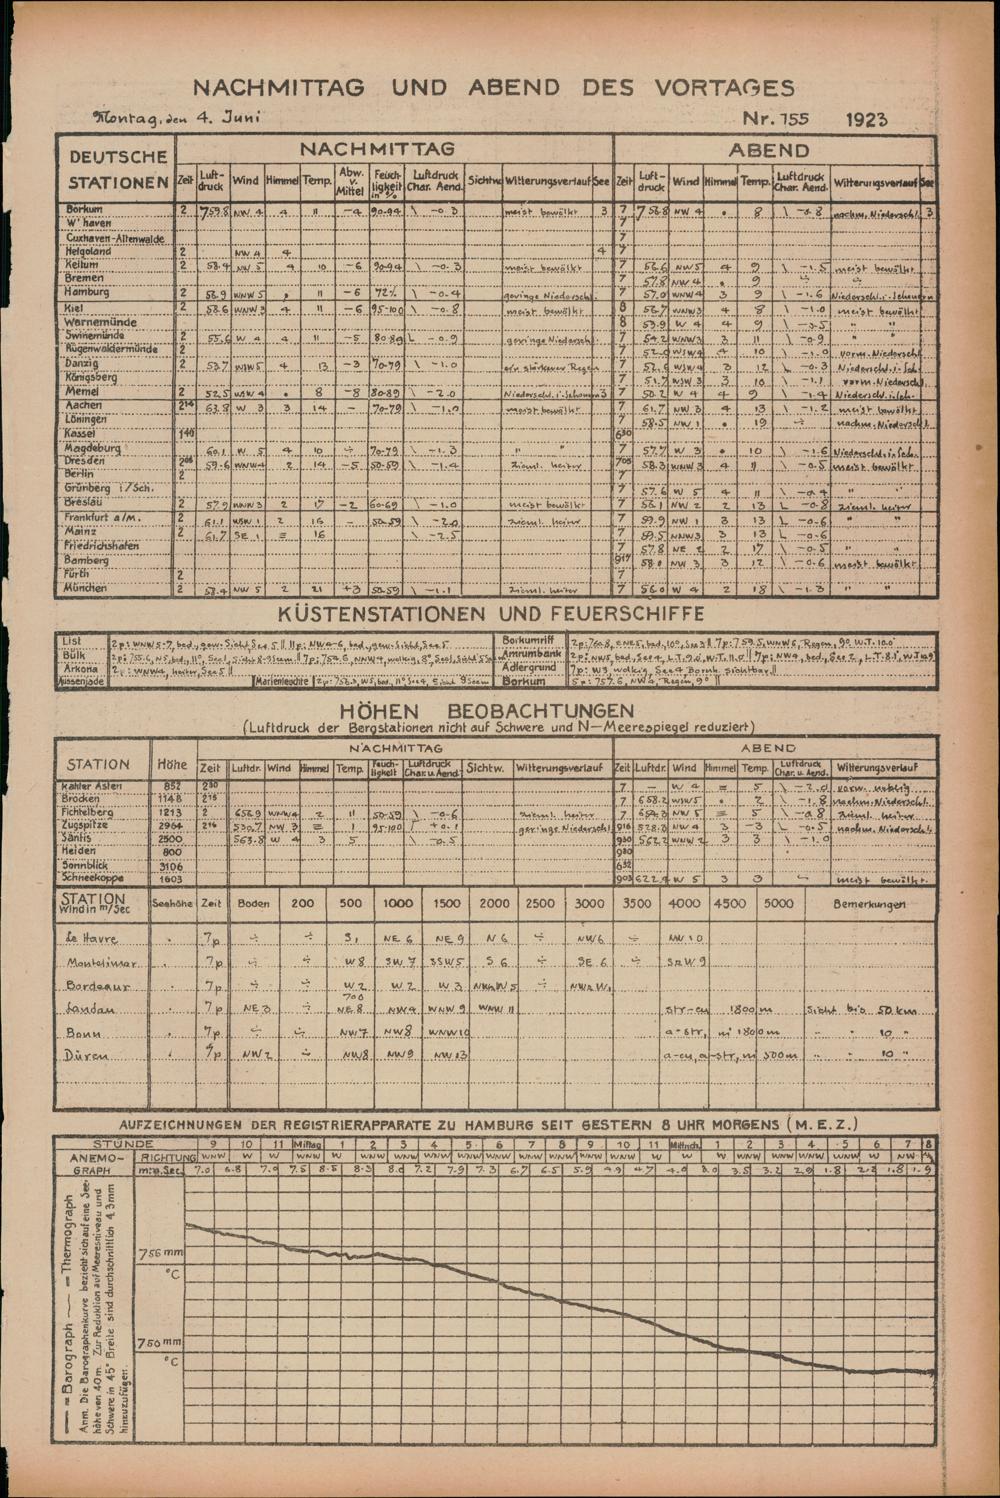 NACHMITTAG UND ABEND DES VORTAGES
Montag, den 4. Juni Nr. 155 1923
DEUTSCHE STATIONEN NACHMITTAG ABEND
Zeit Luft-druck Wind Himmel Temp. Abw. v. Mittel Feuch-ligkeit in % Luftdruck Char. Aend. Sichtw. Witterungsverlauf See Zeit Luft-druck Wind Himmel Temp. Luftdruck Char. Aend. Witterungsverlauf See
Borkum 2 759.8 NW 4 4 11 -4 90-94 \ -0.3 meist bewölkt 3 7 756.8 NW 4 • 8 \ -0.8 nachm. Niederschl. 3
W'haven 7
Cuxhaven-Altenwalde 7
Helgoland 2 NW 4 4 4 7
Keitum 2 58.4 NW 5 4 10 -6 90-94 \ -0.3 meist bewölkt 7 56.6 NW 5 4 9 \ -1.5 meist bewölkt
Bremen 7 57.8 NW 4 • 9 ÷
Hamburg 2 58.9 WNW 5 11 -6 72% \ -0.4 geringe Niederschl. 7 57.0 WNW 4 3 9 \ -1.6 Niederschl. i. Schauern
Kiel 2 58.6 WNW 3 4 11 -6 95-100 \ -0.8 meist bewölkt 8 56.7 WNW 3 4 8 \ -1.0 meist bewölkt
Warnemünde 8 53.9 W 4 4 9 -0.5 " "
Swinemünde 2 55.6 W 4 4 11 -5 80-89 L -0.9 geringe Niederschl. 7 54.2 WNW 3 3 11 \ -0.9 " "
Rügenwaldermünde 2 7 52.0 WSW 4 4 10 -1.0 vorm. Niederschl.
Danzig 2 53.7 WSW 5 4 13 -3 70-79 \ -1.0 ein stärkerer Regen 7 52.6 WSW 4 3 12 L -0.3 Niederschl. i. Sch.
Königsberg 7 51.7 WSW 3 3 10 \ -1.1 vorm. Niederschl.
Memel 2 52.5 WSW 4 • 8 -8 80-89 \ -2.0 Niederschl. i. Schauern 3 7 50.2 W 4 4 9 -1.4 Niederschl. i. Sch.
Aachen 2 14 63.8 W 3 3 14 - 70-79 \ -1.0 meist bewölkt 7 61.7 NW 3 4 13 \ -1.2 meist bewölkt
Löningen 7 58.5 NW 1 • 19 ÷ nachm. Niederschl.
Kassel 1 40 6 30
Magdeburg 60.1 W 5 4 10 ÷ 70-79 \ -1.3 " " 7 57.7 W 3 • 10 \ -1.6 Niederschl. in Sch.
Dresden 2 08 59.6 WNW 4 2 14 -5 50-59 \ -1.4 zieml. heiter 7 08 58.3 WNW 3 4 11 \ -0.5 meist bewölkt
Berlin 2 7
Grünberg i/Sch. 7 57.6 W 5 4 11 \ -0.4 " "
Breslau 2 57.9 WNW 3 2 17 -2 60-69 \ -1.0 meist bewölkt 7 58.1 NW 2 2 13 L -0.8 zieml. heiter
Frankfurt a/M. 2 61.1 WSW 1 2 16 - 50-59 \ -2.0 zieml. heiter 7 59.9 NW 1 3 13 L -0.6 " "
Mainz 2 61.7 SE 1 = 16 \ -2.5 7 59.5 NNW 3 3 13 L -0.6
Friedrichshafen 7 57.8 NE 2 2 17 \ -0.5 " "
Bamberg 9 17 58.0 NW 3 3 12 \ -0.6 meist bewölkt
Fürth 2 7
München 2 58.4 NW 5 2 21 +3 50-59 \ -1.1 zieml. heiter 7 56.0 W 4 2 18 \ -1.3 " "
KÜSTENSTATIONEN UND FEUERSCHIFFE
List 2p: WNW 5-7, bed., gew. Sicht See 5 || 11p: NW 4-6, bed., gew. Sicht, See 5
Bülk
Arkona 2p: WNW 4, heiter, See 5
Aussenjade Marienleuchte 2p: 756.3, W5, bed., 11°, See 4, Sicht 9 Seem
Borkumriff
Amrumbank
Adlergrund 7p: W3, wolkig, See 4 Bornh. sichtbar.
Borkum 5p: 757.6, NW 4, Regen, 9°
HÖHEN BEOBACHTUNGEN
(Luftdruck der Bergstationen nicht auf Schwere und N-Meerespiegel reduziert)
STATION Höhe NACHMITTAG ABEND
Zeit Luftdr. Wind Himmel Temp. Feuch-ligkeit Luftdruck Char. u. Aend. Sichtw. Witterungsverlauf Zeit Luftdr. Wind Himmel Temp. Luftdruck Char. u. Aend. Witterungsverlauf
Kahler Asten 852 2 30 7 - W 4 = 5 \ -2.0 vorw. neblig
Brocken 1148 2 15 7 658.2 WSW 5 • 2 \ -1.8 nachm. Niederschl.
Fichtelberg 1213 2 656.9 WNW 4 2 11 50-59 \ -0.6 zieml. heiter 7 654.3 NW 5 = 5 \ -0.8 zieml. heiter
Zugspitze 2964 2 14 530.7 NW 3 = 1 95-100 +0.1 geringe Niederschl. 9 16 528.3 NW 4 3 -3 \ -0.5 nachm. Niederschl.
Säntis 2500 563.8 W 4 3 5 \ -0.5 9 30 562.2 WNW 2 3 3 \ -1.0
Heiden 800 9 30
Sonnblick 3106 6 52
Schneekoppe 1603 9 03 622.4 W 5 3 3 meist bewölkt.
STATION Wind in m/Sec Seehöhe Zeit Boden 200 500 1000 1500 2000 2500 3000 3500 4000 4500 5000 Bemerkungen
Le Havre . 7p ÷ ÷ S 1 NE 6 NE 9 N 6 ÷ NW 6 ÷ NW 10
Montelimar . 7p ÷ ÷ W 8 SW 7 SSW 5 S 6 ÷ SE 6 ÷
Bordeaux . 7p ÷ ÷ W 2 W 2 W 3 ÷
Landau . 7p NE 3 ÷ 700 NE 8 NW 4 WNW 9 WNW 11 str-cu 1800 m Sicht bis 50 km
Bonn . 7p ÷ ÷ NW 7 NW 8 WNW 10 a-str, m 1800 m " " 10 "
Düren . 7p NW 2 ÷ NW 8 NW 9 NW 13 a-cu, a-str, m 500 m " " 10 "
AUFZEICHNUNGEN DER REGISTRIERAPPARATE ZU HAMBURG SEIT GESTERN 8 UHR MORGENS (M.E.Z.)
STUNDE 9 10 11 Mittag 1 2 3 4 5 6 7 8 9 10 11 Mittnch. 1 2 3 4 5 6 7 8
ANEMO-GRAPH RICHTUNG WNW W W WNW WNW WNW WNW WNW WNW WNW WNW WNW WNW WNW WNW W W WNW W WNW WNW W NW
m.p.Sec. 7.0 6.8 7.9 7.5 8.5 8.3 8.0 7.2 7.9 7.3 6.7 6.5 5.9 4.9 4.7 4.0 3.0 3.5 3.2 2.9 1.8 2.2 1.8 1.9
— = Barograph — = Thermograph
Anm. Die Barographenkurve bezieht sich auf eine See-
höhe von 40 m. Zur Reduktion auf Meeresniveau und
Schwere in 45° Breite sind durchschnittlich 4,3 mm
hinzuzufügen.
756 mm
°C
750 mm
°C